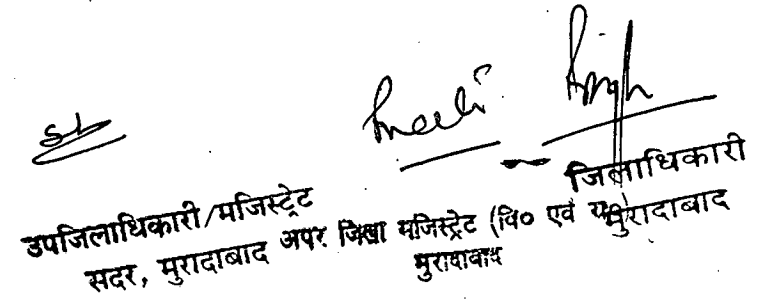 उपजिलाधिकारी/मजिस्ट्रेट
सदर, मुरादाबाद
अपर जिला मजिस्ट्रेट (वि० एवं
मुरादाबाद
जिलाधिकारी
मुरादाबाद